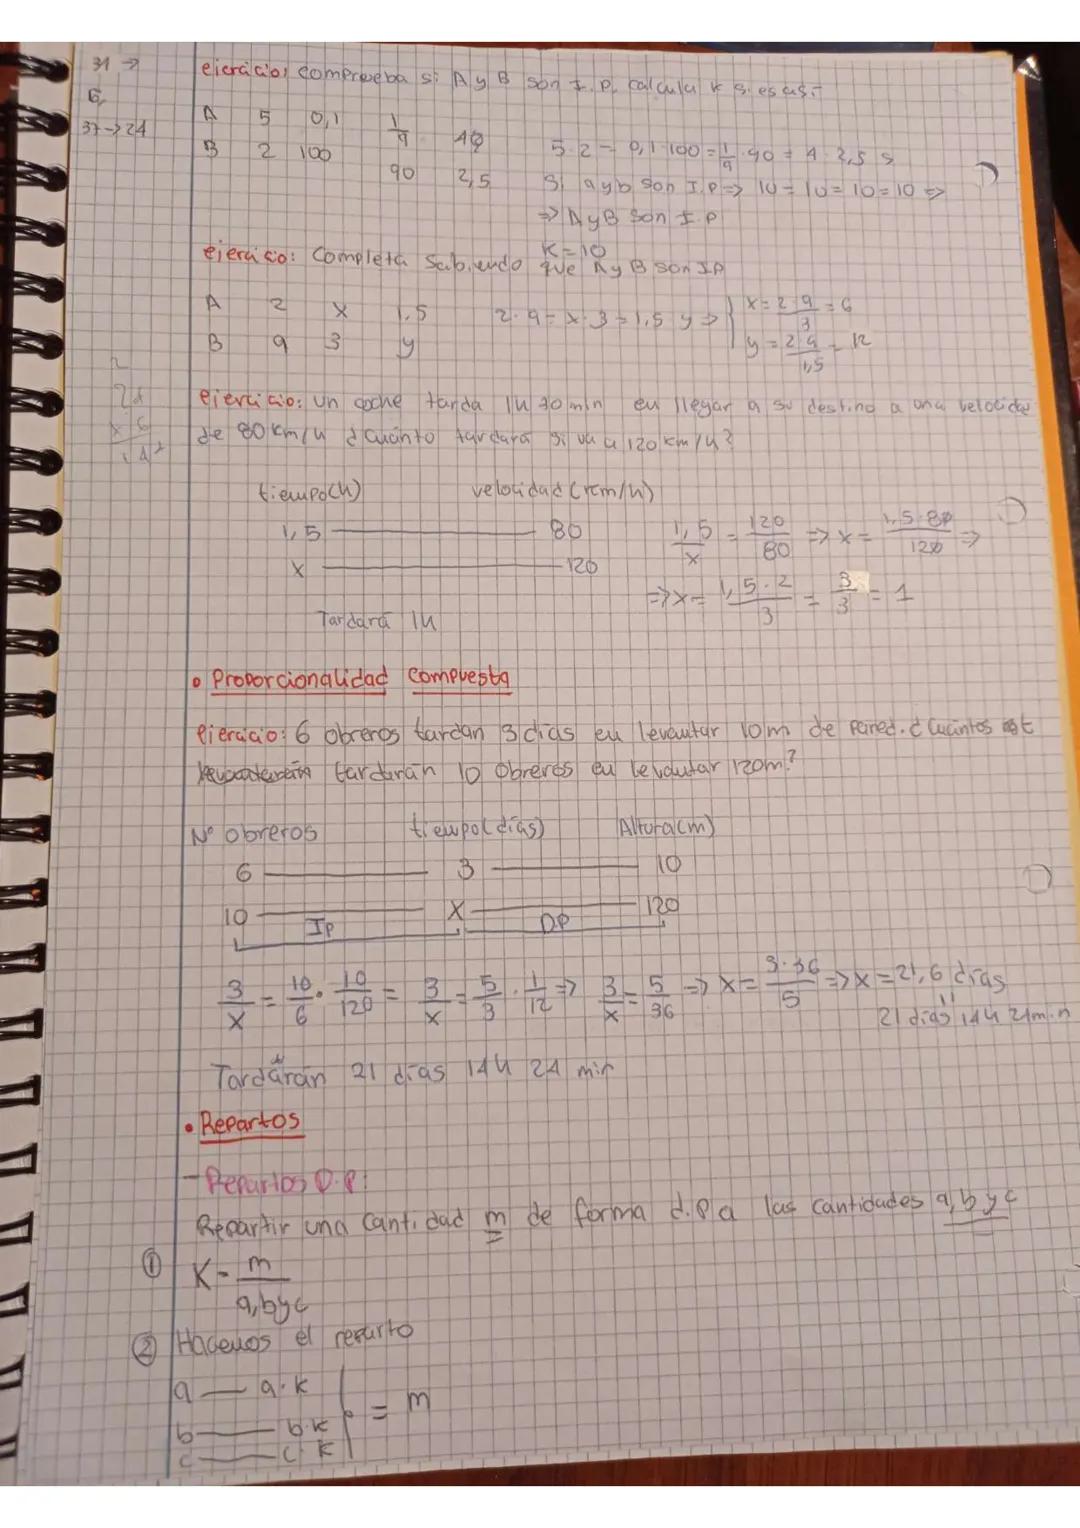 31 →
6,
37 → 24
ejercicio: comprueba si A y B son I.P. calcula k si es así-
A 5 0,1 1/9 4
B 2 100 90 2,5
5·2 = 0,1·100 = 1/9·90 = 4·2,5 s
Si a y b son I.P => 10 = 10 = 10 = 10 =>
=> A y B son I.P
K = 10
ejercicio: Completa sabiendo que A y B son IP
A 2 x 1,5
B 9 3 y
2·9 = x·3 = 1,5 y => { x = 2·9/3 = 6
y = 2·9/1,5 = 12
ejercicio: un coche tarda 1h 30min en llegar a su destino a una velocidad
de 80 km/h ¿Cuánto tardará si va a 120 km/h?
tiempo(h) velocidad (km/h)
1,5 —— 80
x —— 120
1,5/x = 120/80 => x = 1,5·80/120 =>
=> x = 1,5·2/3 = 3/3 = 1
Tardará 1h
• Proporcionalidad compuesta
ejercicio: 6 obreros tardan 3 días en levantar 10m de pared. ¿Cuántos
tardarán 10 obreros en levantar 120m?
Nº obreros tiempo(días) Altura(m)
6 —— 3 —— 10
10 —— x —— 120
IP DP
3/x = 10/6 · 10/120 = 3/x = 5/3 · 1/12 => 3/x = 5/36 => x = 3·36/5 => x = 21,6 días
21 días 14h 24min
Tardarán 21 días 14h 24 min
• Repartos
- Repartos D.P:
Repartir una cantidad m de forma d.p a las cantidades a, b y c
① K = m/a,byc
② Hacemos el reparto
a — a·k
b — b·k
c — c·k
= m